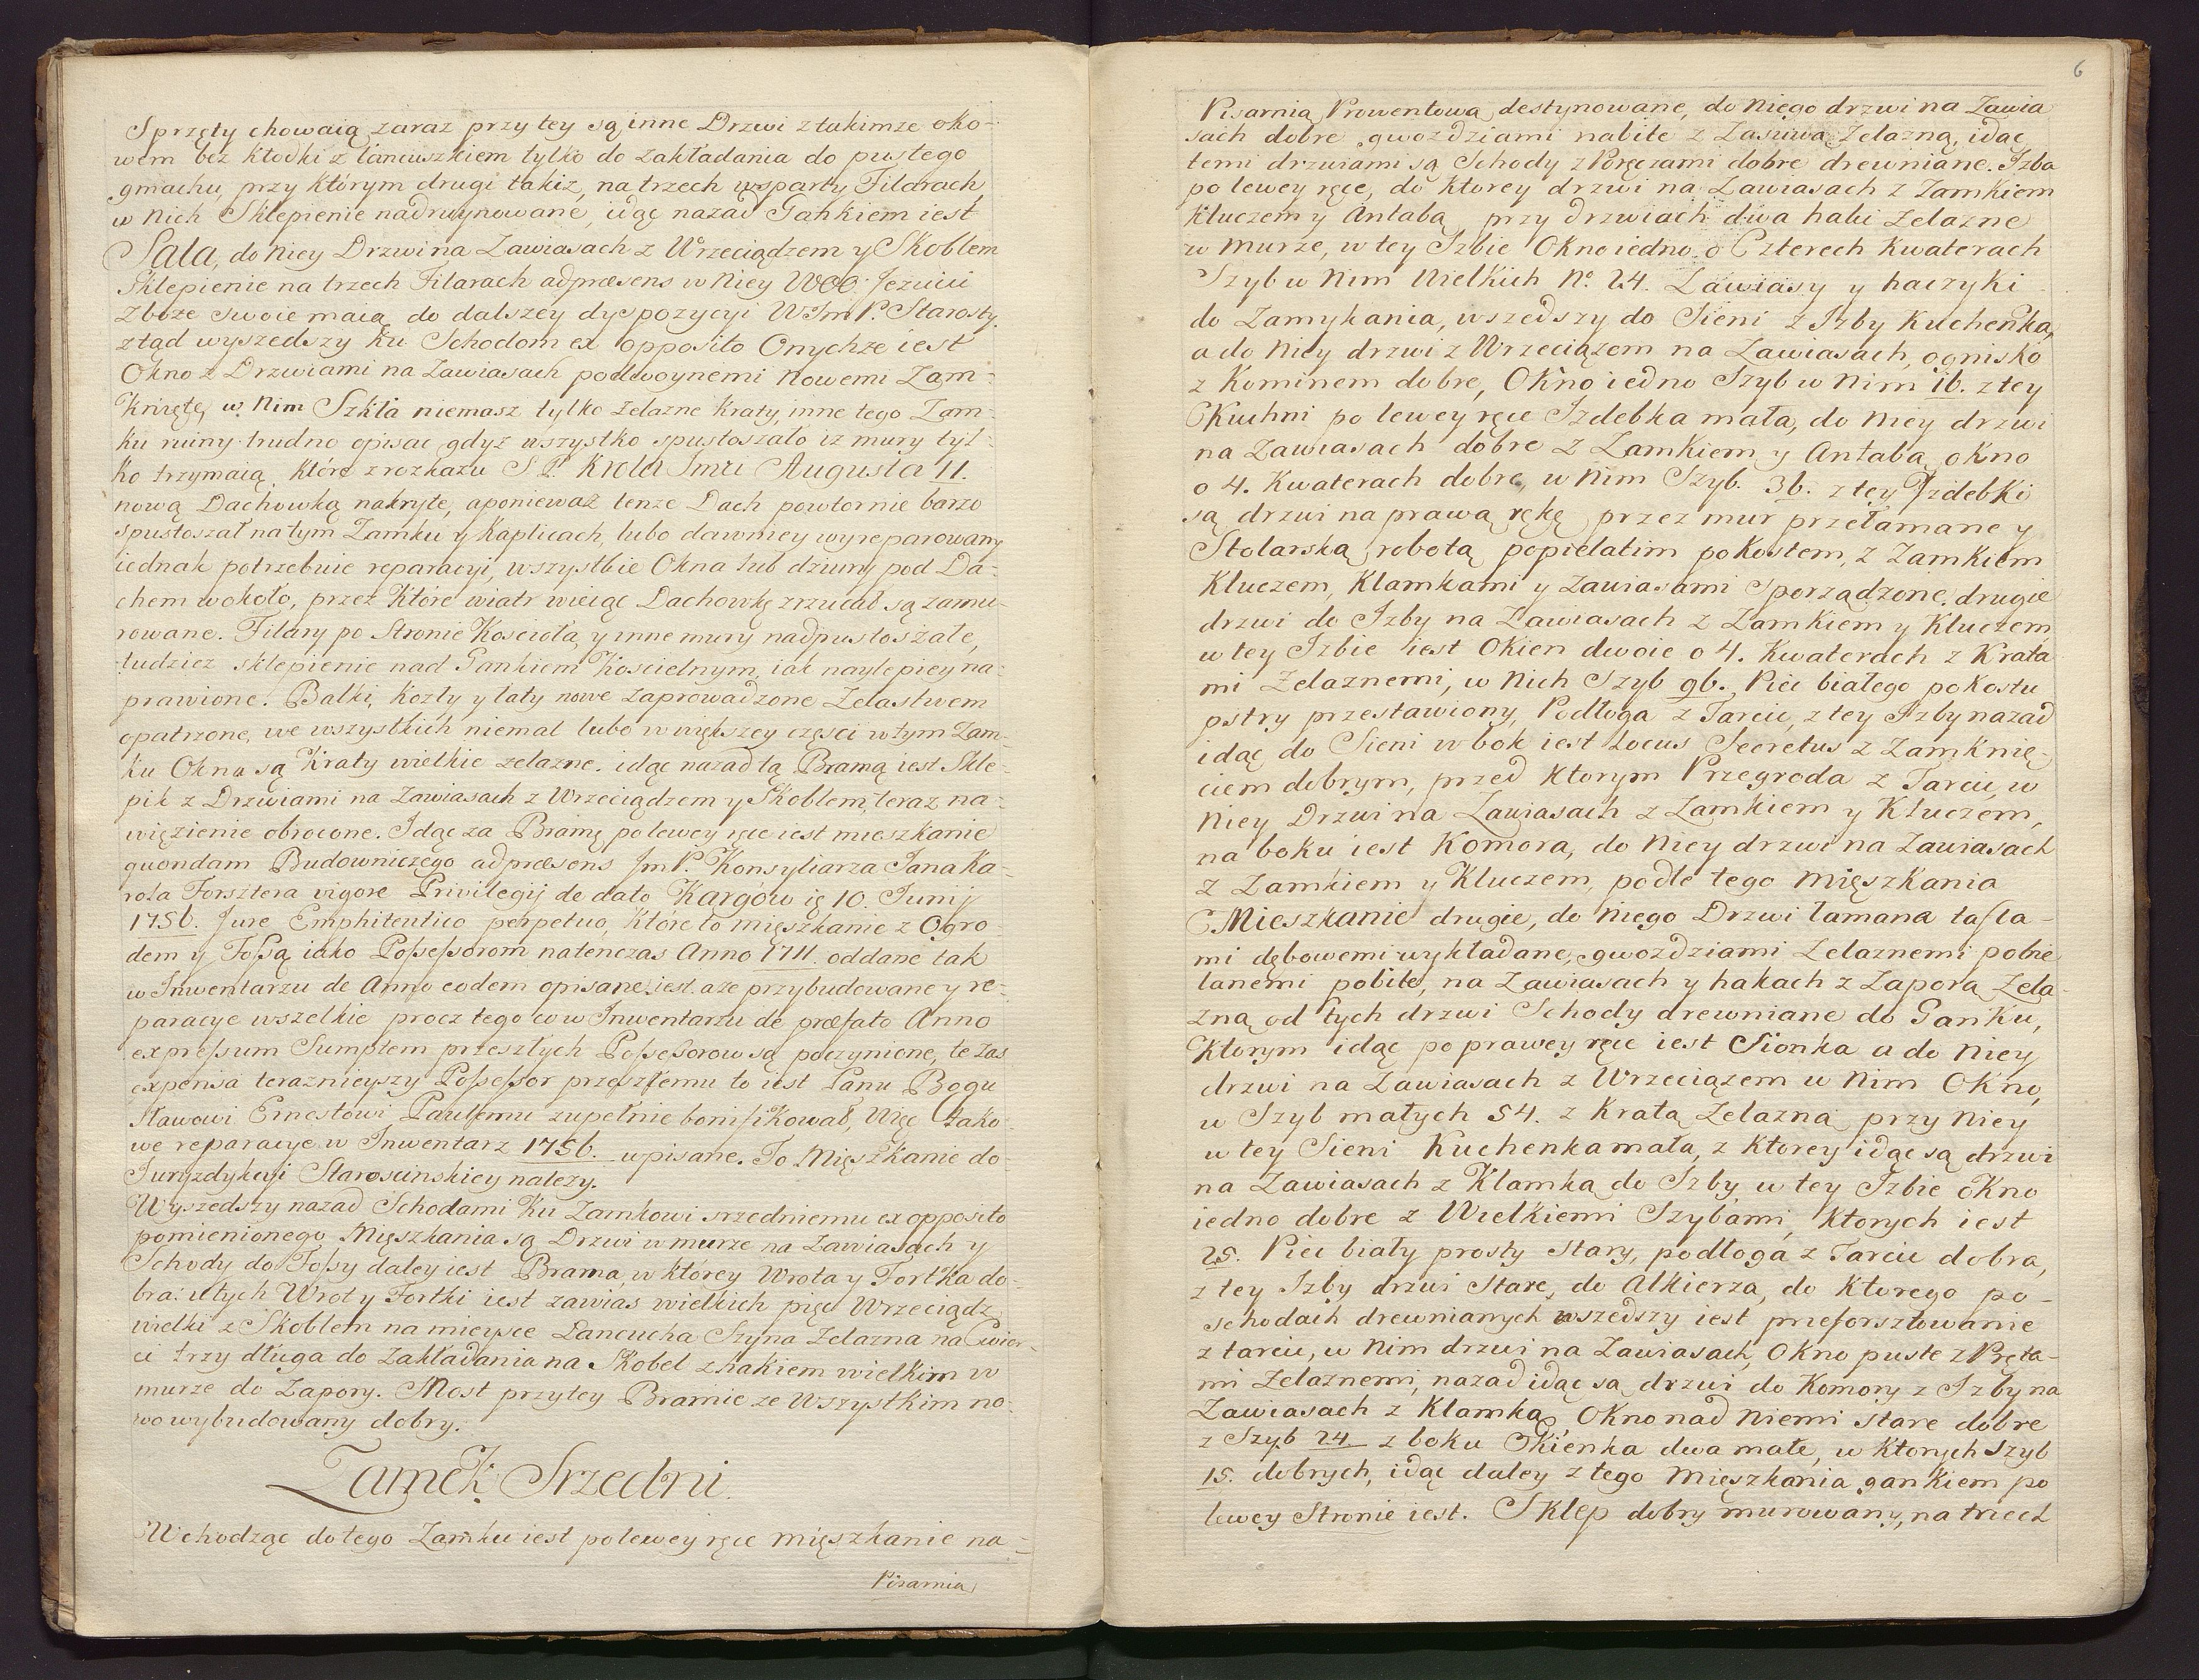 Sprzęty chowaią zaraz przy tey są inne Drzwi z takimze oko-
wem bez kłodki z łancuszkiem tylko do zakładania do pustego
gmachu, przy którym drugi takiz, na trzech wsparty Filarach
w Nich Sklepienie nadruynowane, idąc nazad Gankiem iest
Sala, do Niey Drzwi na Zawiasach z Wrzeciądzem y Skoblem
Sklepienie na trzech Filarach adpræsens w Niey WOO. Jezuici
Zboze swoie maią do dalszey dyspozycyi WJmP. Starosty.
ztąd wyszedszy ku Schodom ex opposito Onychze iest
Okno z Drzwiami na Zawiasach podwoynemi Nowemi Zam-
knięte, w Nim Szkła niemasz tylko zelazne kraty, inne tego Zam-
ku ruiny trudno opisac gdyz wszystko spustoszało iz mury tyl-
ko trzymaią, które z rozkazu S. P. Krola Jmci Augusta II.
nową Dachowką nakryte, aponiewaz tenze Dach powtornie barzo
spustoszał na tym Zamku y Kaplicach, lubo dawniey wyreparowany
iednak potrzebuie reparacyi, wszystkie Okna lub dziury pod Da-
chem wokoło, przez które wiatr wieiąc Dachowkę zrzucał są zamu-
rowane. Filary po Stronie Koscioła, y inne mury nadpustoszałe,
tudziez sklepienie nad Gankiem Koscielnym, iak naylepiey na-
prawione. Balki, kozły y łaty nowe zaprowadzone Zelastwem
opatrzone, we wszystkich niemal lubo w większey częsci w tym Zam-
ku Okna są Kraty wielkie zelazne. idąc nazad tą Bramą iest Skle-
pik z Drzwiami na Zawiasach z Wrzeciądzem y Skoblem, teraz na-
więzienie obrocone. Idąc za Bramę po lewey ręce iest mieszkanie
quondam Budowniczego adpræsens JmP. Konsyliarza Jana Ka-
rola Forsztera vigore Privilegij de dato Kargów ię 10. Junij
1756. Jure Emphiteutico perpetuo, które to mięszkanie z Ogro-
dem y Fossą iako Possessorom natenczas Anno 1711. oddane tak
w Inwentarzu de Anno eodem opisane iest. aze przybudowane y re-
paracye wszelkie procz tego co w Inwentarzu de præfato Anno
expressum Sumptem przeszłych Possessorow są poczynione, te zas
expensa teraznieyszy Possessor przeszłemu to iest Panu Bogu
sławowi Ernestowi Paulsemu zupełnie bonifikował, Więc tako-
we reparacye w Inwentarz 1756. wpisane. To Mięszkanie do
Juryzdykcyi Staroscinskiey nalezy.
Wyszedszy nazad Schodami ku Zamkowi srzedniemu ex opposito
pomienionego Mięszkania są Drzwi w murze na Zawiasach y
Schody do Fossy daley iest Brama, w którey Wrota y Fortka do-
bra: utych Wrot y Fortki iest zawias wielkich pięc Wrzeciądz
wielki z Skoblem na mieysce Lancucha Szyna Zelazna na Cwier-
ci trzy długa do Zakładania na Skobel z hakiem wielkim w
murze do Zapory. Most przytey Bramie ze Wszystkim no-
wo wybudowany dobry.
Zamek Srzedni.
Wchodząc do tego Zamku iest po lewey ręce mięszkanie na-
Pisarnia
6
Pisarnią Prowentową destynowane, do Niego drzwi na Zawia
sach dobre gwozdziami nabite z Zasuwą Zelazną, idąc
temi drzwiami są Schody z Poręczami dobre drewniane. Izba
po lewey ręce, do Ktorey drzwi na Zawiasach z Zamkiem
Kluczem y Antabą przy drzwiach dwa haki Zelazne
w Murze, w tey Izbie Okno iedno o Czterech Kwaterach
Szyb w Nim Wielkich No. 24. Zawiasy y haczyki
do Zamykania, wszedszy do Sieni z Izby Kuchenka,
a do Niey drzwi z Wrzeciązem na Zawiasach, ognisko
z Kominem dobre, Okno iedno Szyb w Nim 16. z tey
Kuchni po lewey ręce Izdebka mała, do Niey drzwi
na Zawiasach dobre z Zamkiem y Antabą, okno
o 4. Kwaterach dobre, w Nim Szyb. 36. z tey Izdebki
są drzwi na prawą rękę przez mur przełamane y
Stolarską robotą popielatim pokostem, z Zamkiem
Kluczem, Klamkami y Zawiasami Sporządzone. drugie
drzwi do Izby na Zawiasach z Zamkiem y Kluczem,
w tey Izbie iest Okien dwoie o 4. Kwaterach z Krata
mi Zelaznemi, w Nich Szyb 96. Piec białego pokostu
pstry przestawiony, Podłoga z Tarcic, z tey Izby nazad
idąc do Sieni w bok iest Locus Secretus z Zamknię-
ciem dobrym, przed Ktorym Przegroda z Tarcic, w
Niey Drzwi na Zawiasach z Zamkiem y Kluczem,
na boku iest Komora, do Niey drzwi na Zawiasach
z Zamkiem y Kluczem, podle tego Mięszkania
Mieszkanie drugie, do Niego Drzwi łamana tafla-
mi dębowemi wykładane, gwozdziami Zelaznemi pobie
lanemi pobite, na Zawiasach y hakach z Zaporą Zela-
zną, od tych drzwi Schody drewniane do Ganku,
Ktorym idąc po prawey ręce iest Sionka a do Niey
drzwi na Zawiasach z Wrzeciązem w Nim Okno,
w Szyb małych 54. z Kratą Zelazną przy Niey
w tey Sieni Kuchenka mała, z Ktorey idąc są drzwi
na Zawiasach z Klamką do Izby, w tey Izbie okno
iedno dobre z Wielkiemi Szybami, Ktorych iest
25. Piec biały prosty Stary, podłoga z Tarcic dobra,
z tey Izby drzwi Stare, do Alkierza, do Ktorego po-
schodach drewnianych wszedszy iest przeforsztowanie
z tarcic, w Nim drzwi na Zawiasach, Okno puste z Pręta-
mi Zelaznemi, nazad idąc są drzwi do Komory z Izby na
Zawiasach z Klamką, Okno nad Niemi Stare dobre
z Szyb 24 z boku Okienka dwa małe, w Ktorych Szyb
15. dobrych, idąc daley z tego Mięszkania gankiem po
lewey Stronie iest. Sklep dobry murowany, na trzech